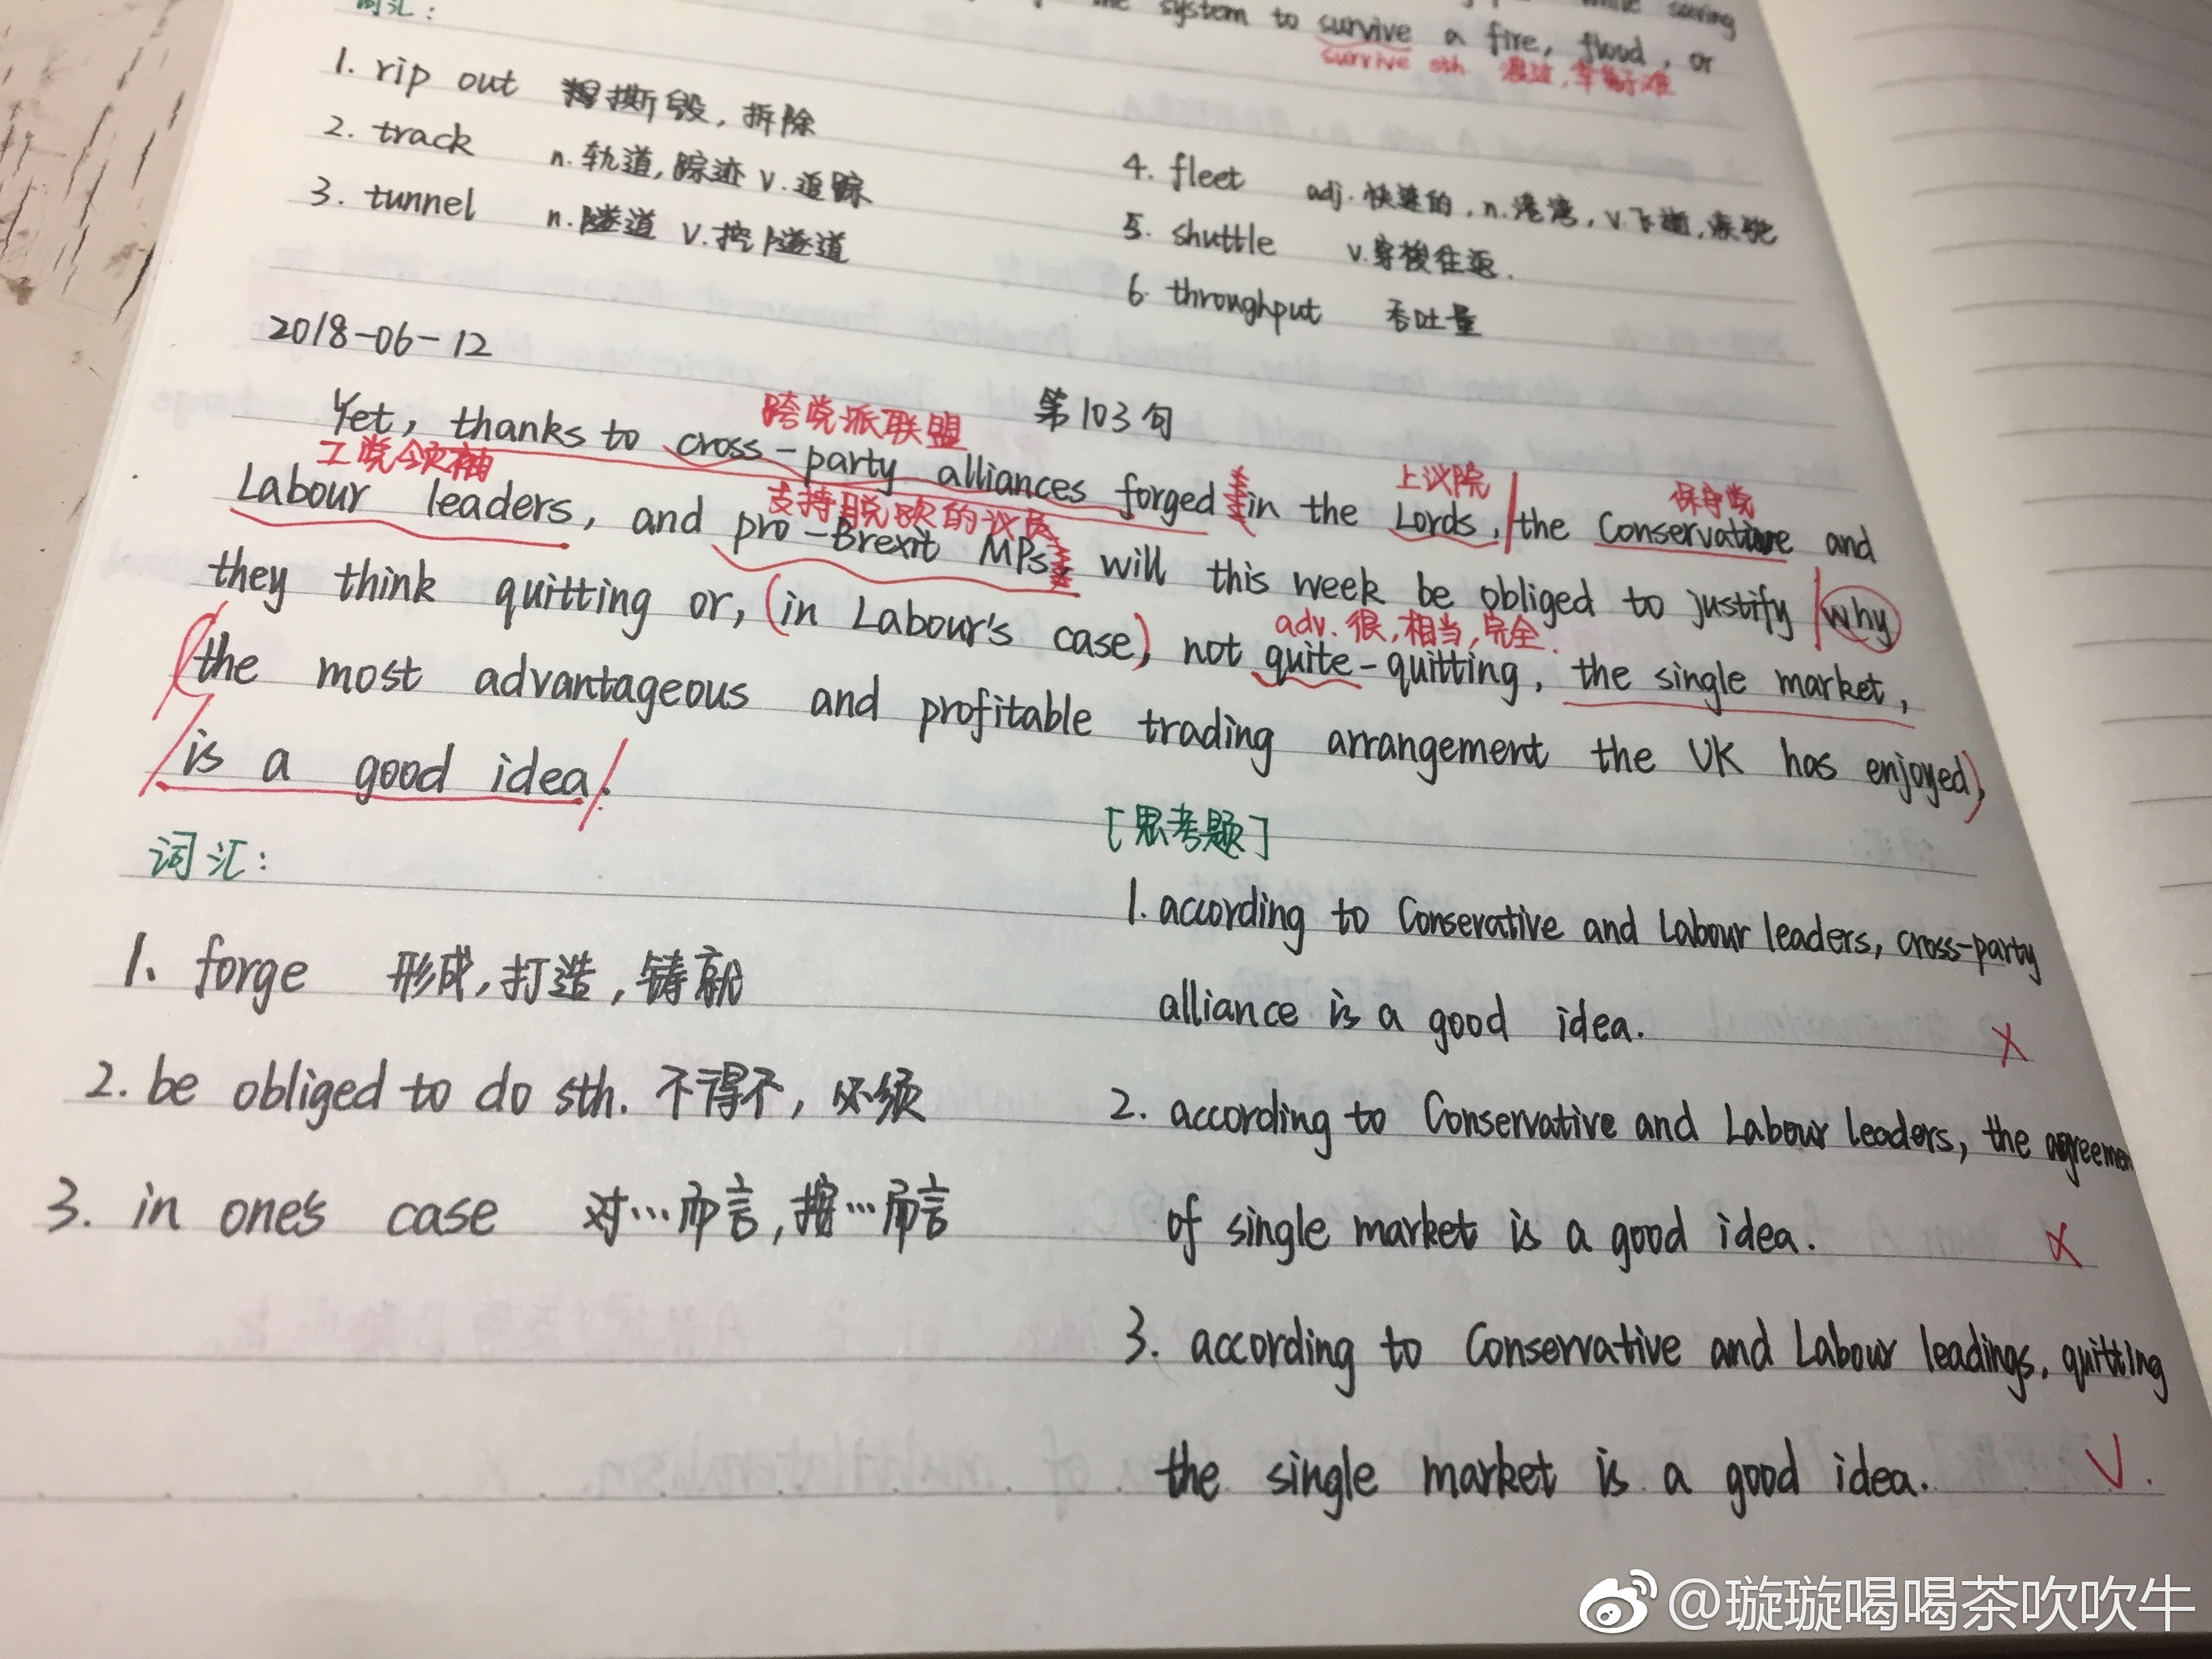 词汇：
system to survive a fire, flood, or
survive sth
1. rip out 撕毁，拆除
2. track n.轨道，踪迹 v.追踪
3. tunnel n.隧道 v.挖隧道
4. fleet adj.快速的，n.港湾，v.飞逝，疾驰
5. shuttle v.穿梭往返.
6. throughput 吞吐量
2018-06-12
第103句
跨党派联盟
Yet, thanks to cross-party alliances forged in the Lords, the Conservative and
工党领袖 支持脱欧的议员 上议院 保守党
Labour leaders, and pro-Brexit MPs, will this week be obliged to justify why
they think quitting or, (in Labour's case), not quite-quitting, the single market,
adv.很,相当,完全.
(the most advantageous and profitable trading arrangement the UK has enjoyed),
is a good idea.
词汇：
1. forge 形成,打造,铸就
2. be obliged to do sth. 不得不，必须
3. in one's case 对…而言,按…而言
[思考题]
1. according to Conserative and Labour leaders, cross-party
alliance is a good idea. ×
2. according to Conservative and Labour leaders, the agreemen
of single market is a good idea. ×
3. according to Conservative and Labour leadings, quitting
the single market is a good idea. √.
@璇璇喝喝茶吹吹牛